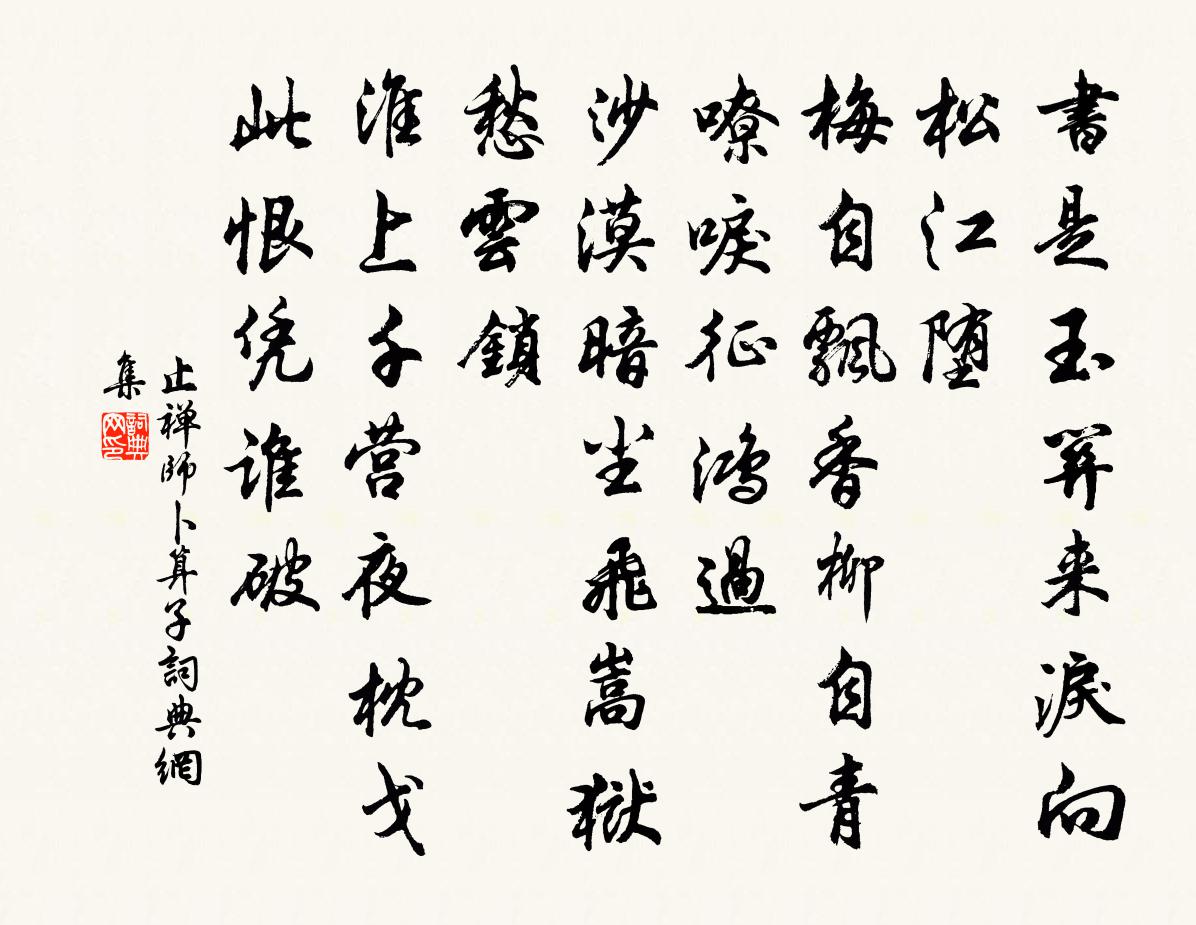 書是玉関来淚向
松江堕
梅自飄香柳自青
嘹唳征鴻過
沙漠暗尘飛嵩獄
愁雲鎖
淮上千营夜枕戈
此恨凭誰破
止禅師卜算子詞典網
集
詞典网印